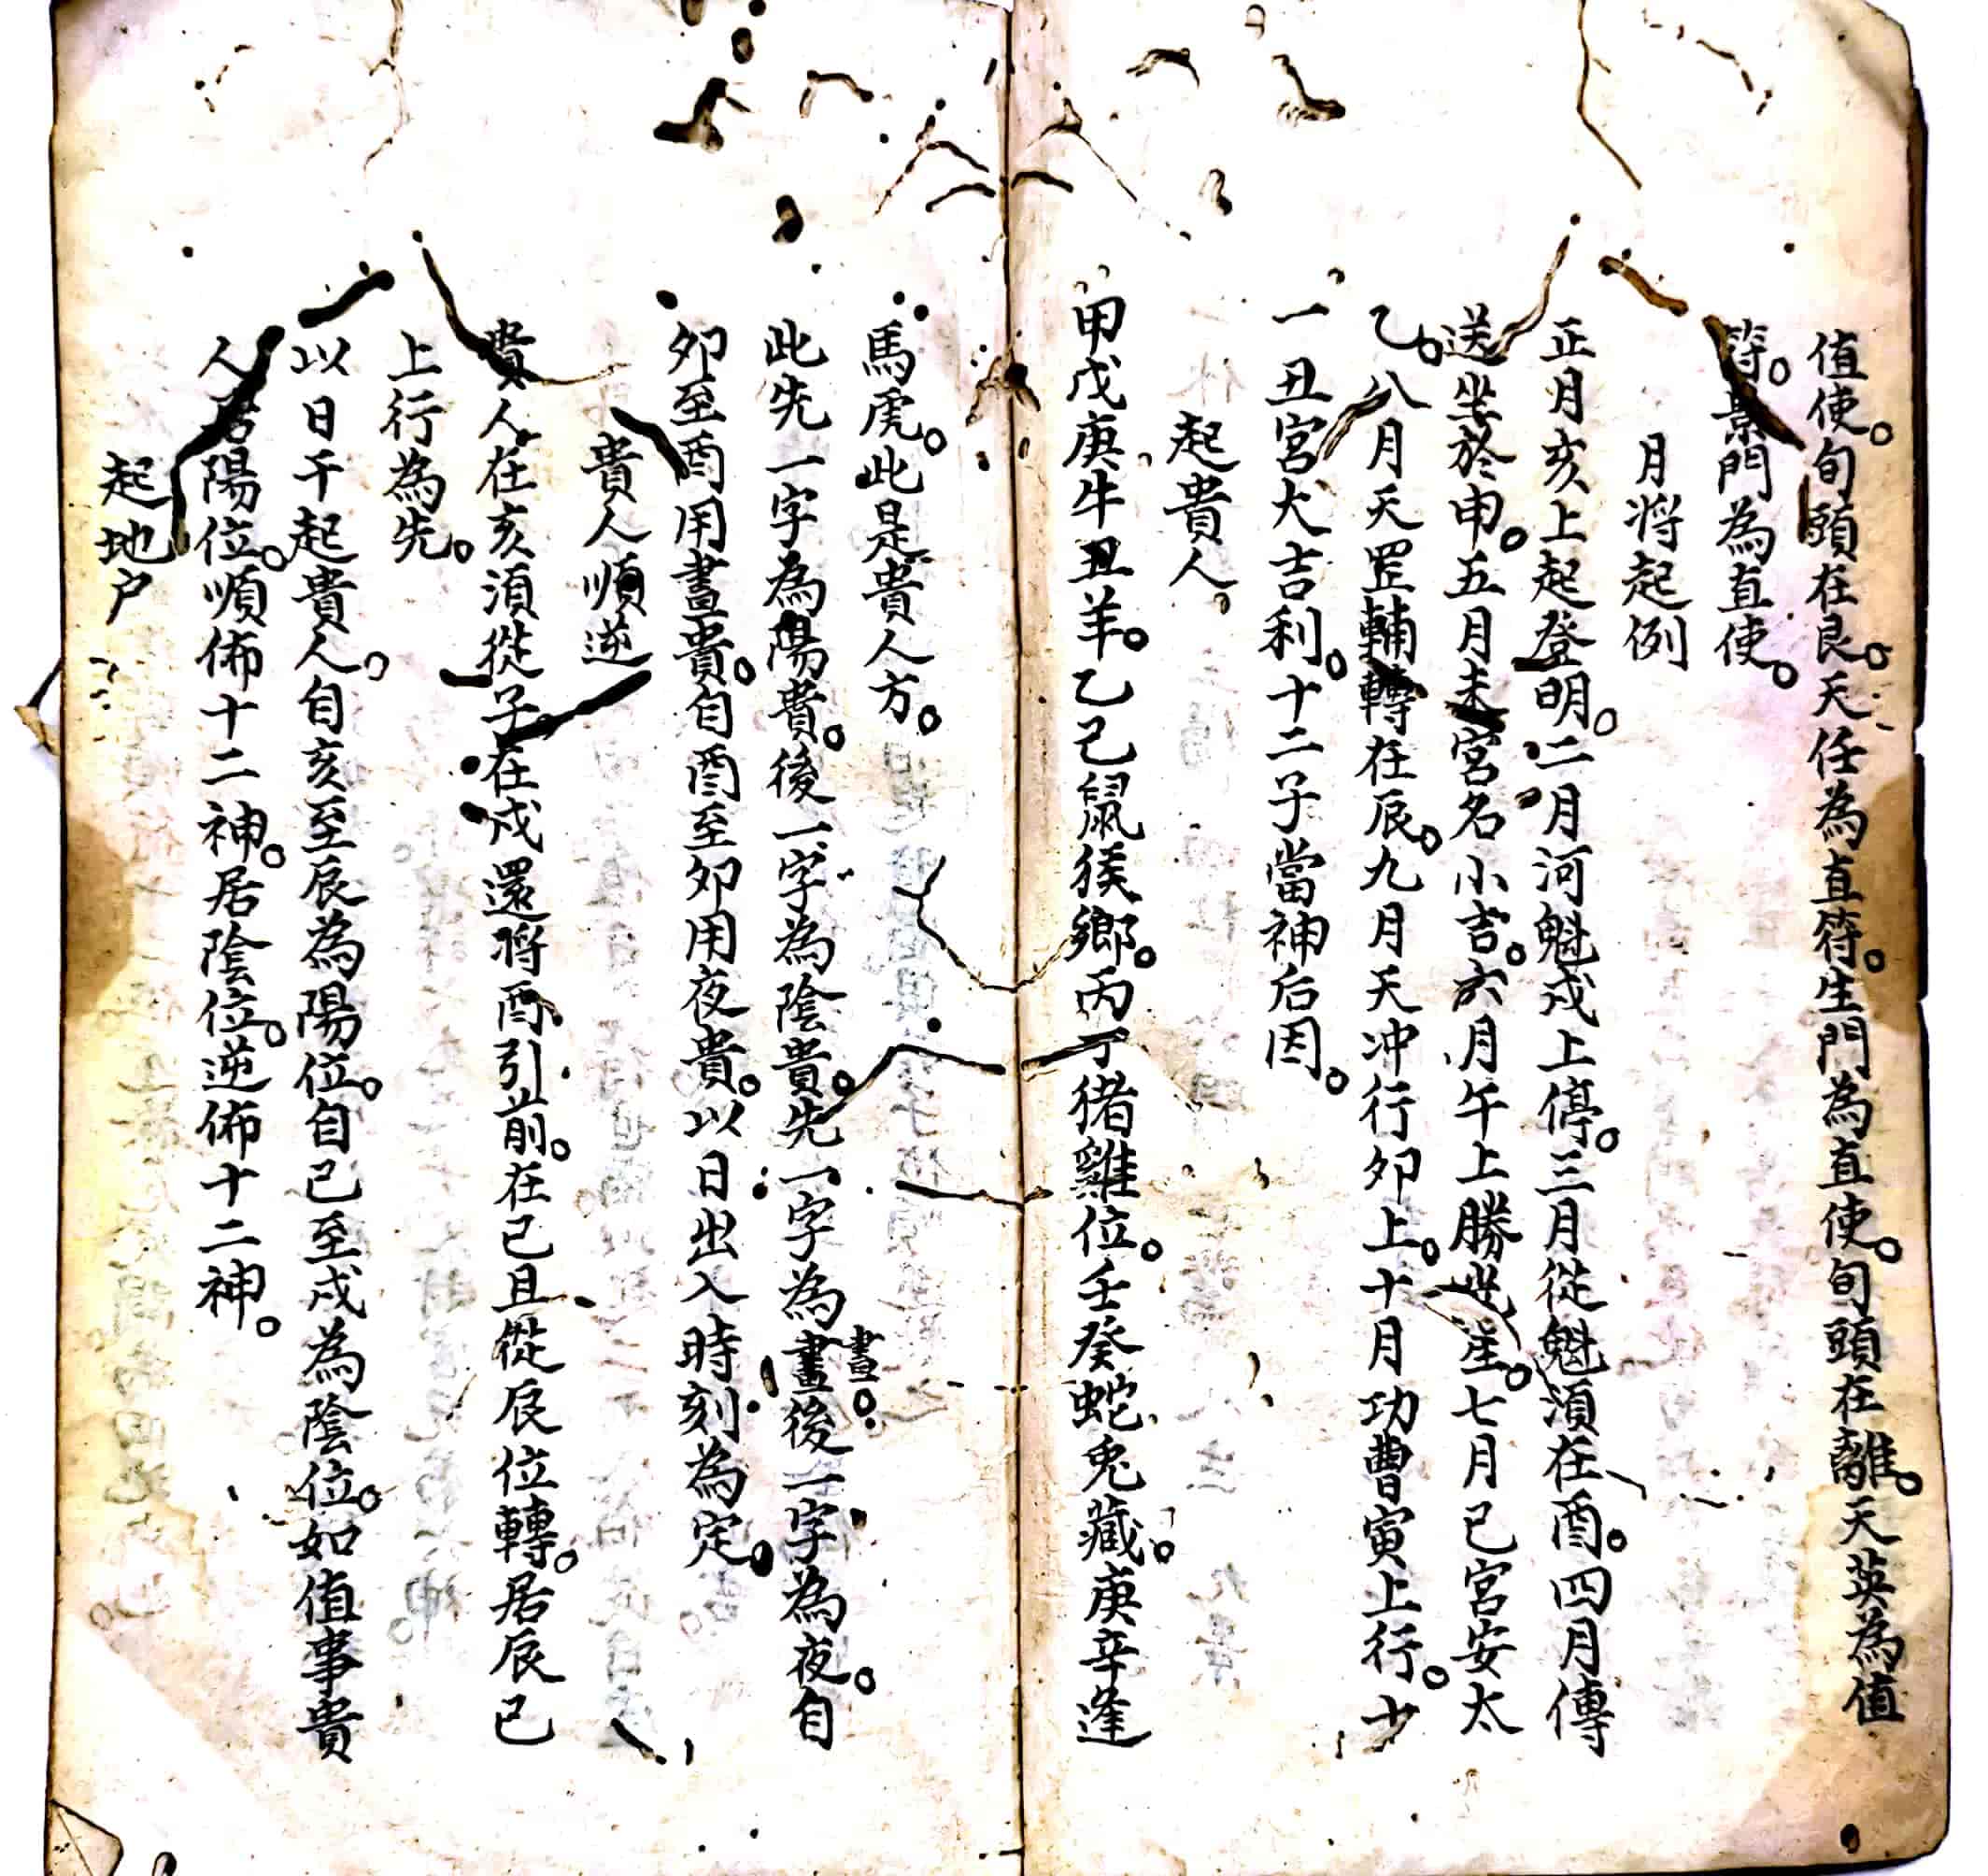 值使。旬頭在艮。天任為直符。生門為直使。旬頭在離。天英為值
符。景門為直使。
月将起例
正月亥上起登明。二月河魁戌上停。三月從魁湏在酉。四月傳
送坐於申。五月未宮名小吉。六月午上勝光。七月巳宮安太
乙。八月天罡輔轉在辰。九月天冲行卯上。十月功曹寅上行。十
一丑宮大吉利。十二子當神后因。
起貴人。
甲戊庚牛丑羊。乙己鼠猴鄉。丙丁猪雞位。壬癸蛇兔藏。庚辛逢
馬虎。此是貴人方。
此先一字為陽貴。後一字為陰貴。先一字為晝後一字為夜。自
晝。
卯至酉用晝貴。自酉至卯用夜貴。以日出入時刻為定。
貴人順逆
貴人在亥湏從子在戌還将酉引前。在巳且從辰位轉。居辰巳
上行為先。
以日干起貴人。自亥至辰為陽位。自巳至戌為陰位。如值事貴
人居陽位。順佈十二神。居陰位。逆佈十二神。
起地户